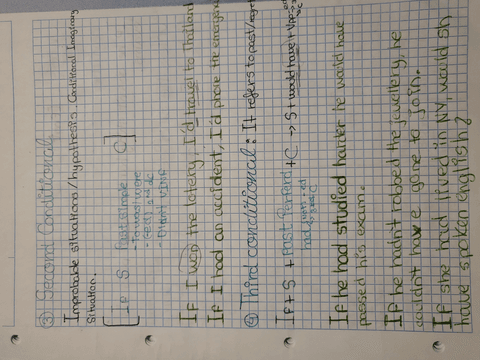 ③ Second Conditional.
Improbable situations/hypothesis. Conditional Imaginary
situation.
[If S Past simple C]
- To was/were
- (ed) 2nd dc
- Didn't VINF
If I won the lotery, I'd travel to Thailand
If I had an accident, I'd prove the emergency
④ Third conditional: It refers to past/
If + S + Past Perfect + C → S + would have + Vpp
had
If he had studied harder he would have
passed his exam.
If he hadn't robbed the jewellery, he
couldn't have gone to join.
If she had lived in NY, would sh
have spoken english?